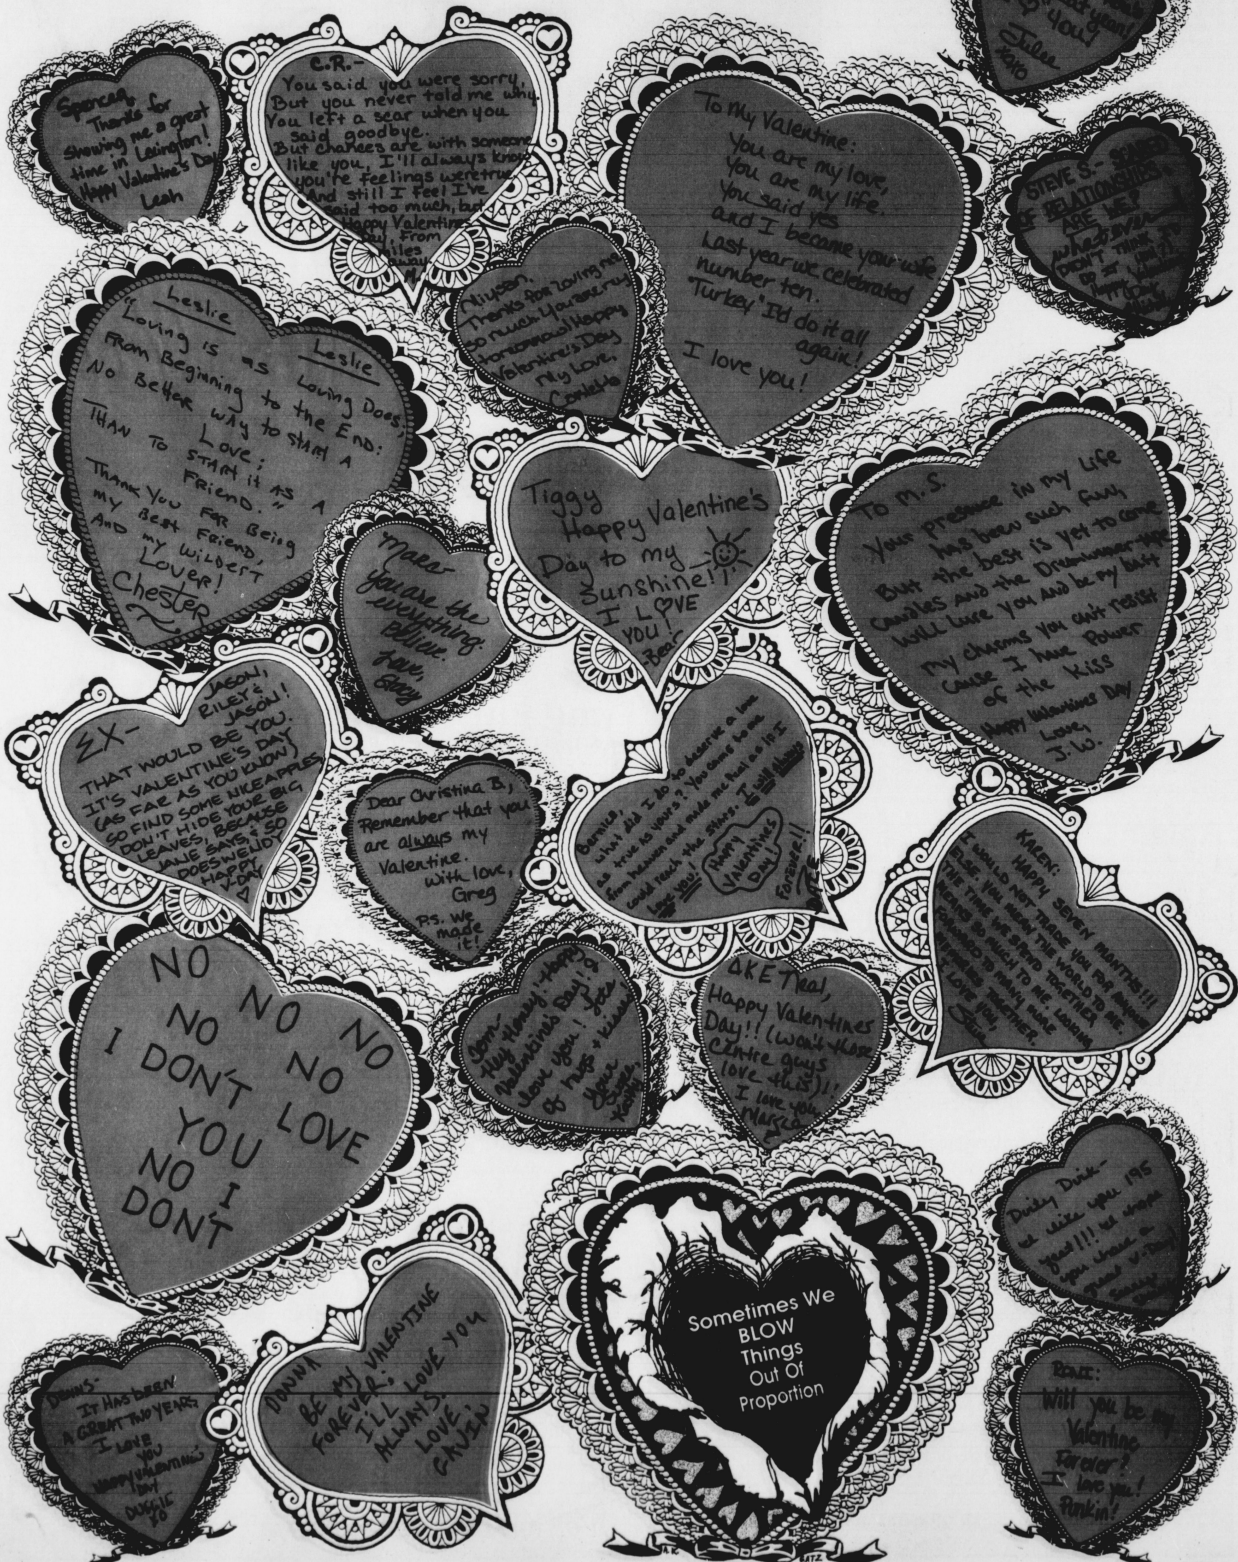 last year!
You!
Julee
XOXO
Spencer,
Thanks for
showing me a great
time in Lexington!
Happy Valentine's Day
Leah
C.R.-
You said you were sorry,
But you never told me why
You left a scar when you
said goodbye.
But chances are with someone
like you, I'll always know
you're feelings were true
And still I feel I've
said too much, but
Happy Valentine
Day. From
miles
away
To My Valentine:
You are my love,
You are my life.
You said yes
and I became your wife
Last year we celebrated
number ten.
"Turkey" I'd do it all
again!
I love you!
STEVE S.- SCARED
OF RELATIONSHIPS
ARE WE?
whatever
DON'T THINK
SO
Allyson,
Thanks for loving me
so much. You are my
tomorrow! Happy
Valentine's Day
My Love,
"Leslie
Leslie
Loving is as Loving Does,
From Beginning to the End:
No Better way to start a
Love;
Than to start it as a
Friend."
Thank You For Being
my Best Friend,
And my Wildest
Lover!
Chester
Tiggy
Happy Valentine's
Day to my
Sunshine!!
I LOVE
YOU!
Bear
To M.S.
Your presence in my life
has been such fun,
But the best is yet to come
Candles and the Drummer-tape
will lure you and be my bait
my charms you can't resist
Cause I have Power
of the Kiss
Happy Valentines Day
Love
J.W.
you are the
everything.
Believe.
Love,
Stacy
EX-
JASON!
RILEY'S
JASON!
THAT WOULD BE YOU.
IT'S VALENTINE'S DAY
(AS FAR AS YOU KNOW)
SO FIND SOME NICE APPLES,
DON'T HIDE YOUR BIG
LEAVES, BECAUSE
JANE SAYS; SO
DOES WEND
HAPPY
V-DAY
Dear Christina B,
Remember that you
are always my
Valentine.
with love,
Greg
P.s. We
made
it!
Bernice,
What did I do to deserve a love
as true as yours? You came to me
from heaven and made me feel as if I
could reach the stars. I will always
love you!
HAPPY
VALENTINES
DAY!
Forever!!
KAREN:
HAPPY SEVEN MONTHS!!!
I WOULD NOT TRADE YOU FOR ANYONE
ELSE. YOU MEAN THE WORLD TO ME.
THE TIME WE SPEND TOGETHER
MEANS SO MUCH TO ME. LOOKING
FORWARD TO MANY MORE
TOGETHER.
I LOVE YOU,
NO
NO NO
NO NO
I DON'T LOVE
YOU
NO I
DON'T
Jon-
Hey Honey! Happy
Valentine's Day!
I love you! Lots
of hugs + kisses!
Your
ΔKE Neal,
Happy Valentines
Day!! (won't those
Centre guys
love this)!!
I love you,
Dirty Dirk-
we like you 195
year!!! we hope
you have a
great V-Day
Sometimes We
BLOW
Things
Out Of
Proportion
Dennis-
IT HAS BEEN
A GREAT TWO YEARS
I LOVE
YOU
HAPPY VALENTINES
DAY
DUGGIE
XO
DONNA
BE MY VALENTINE
FOREVER;
I'LL LOVE YOU
ALWAYS.
LOVE,
GAVIN
Will you be my
Valentine
Forever?
I love you!
Punkin!